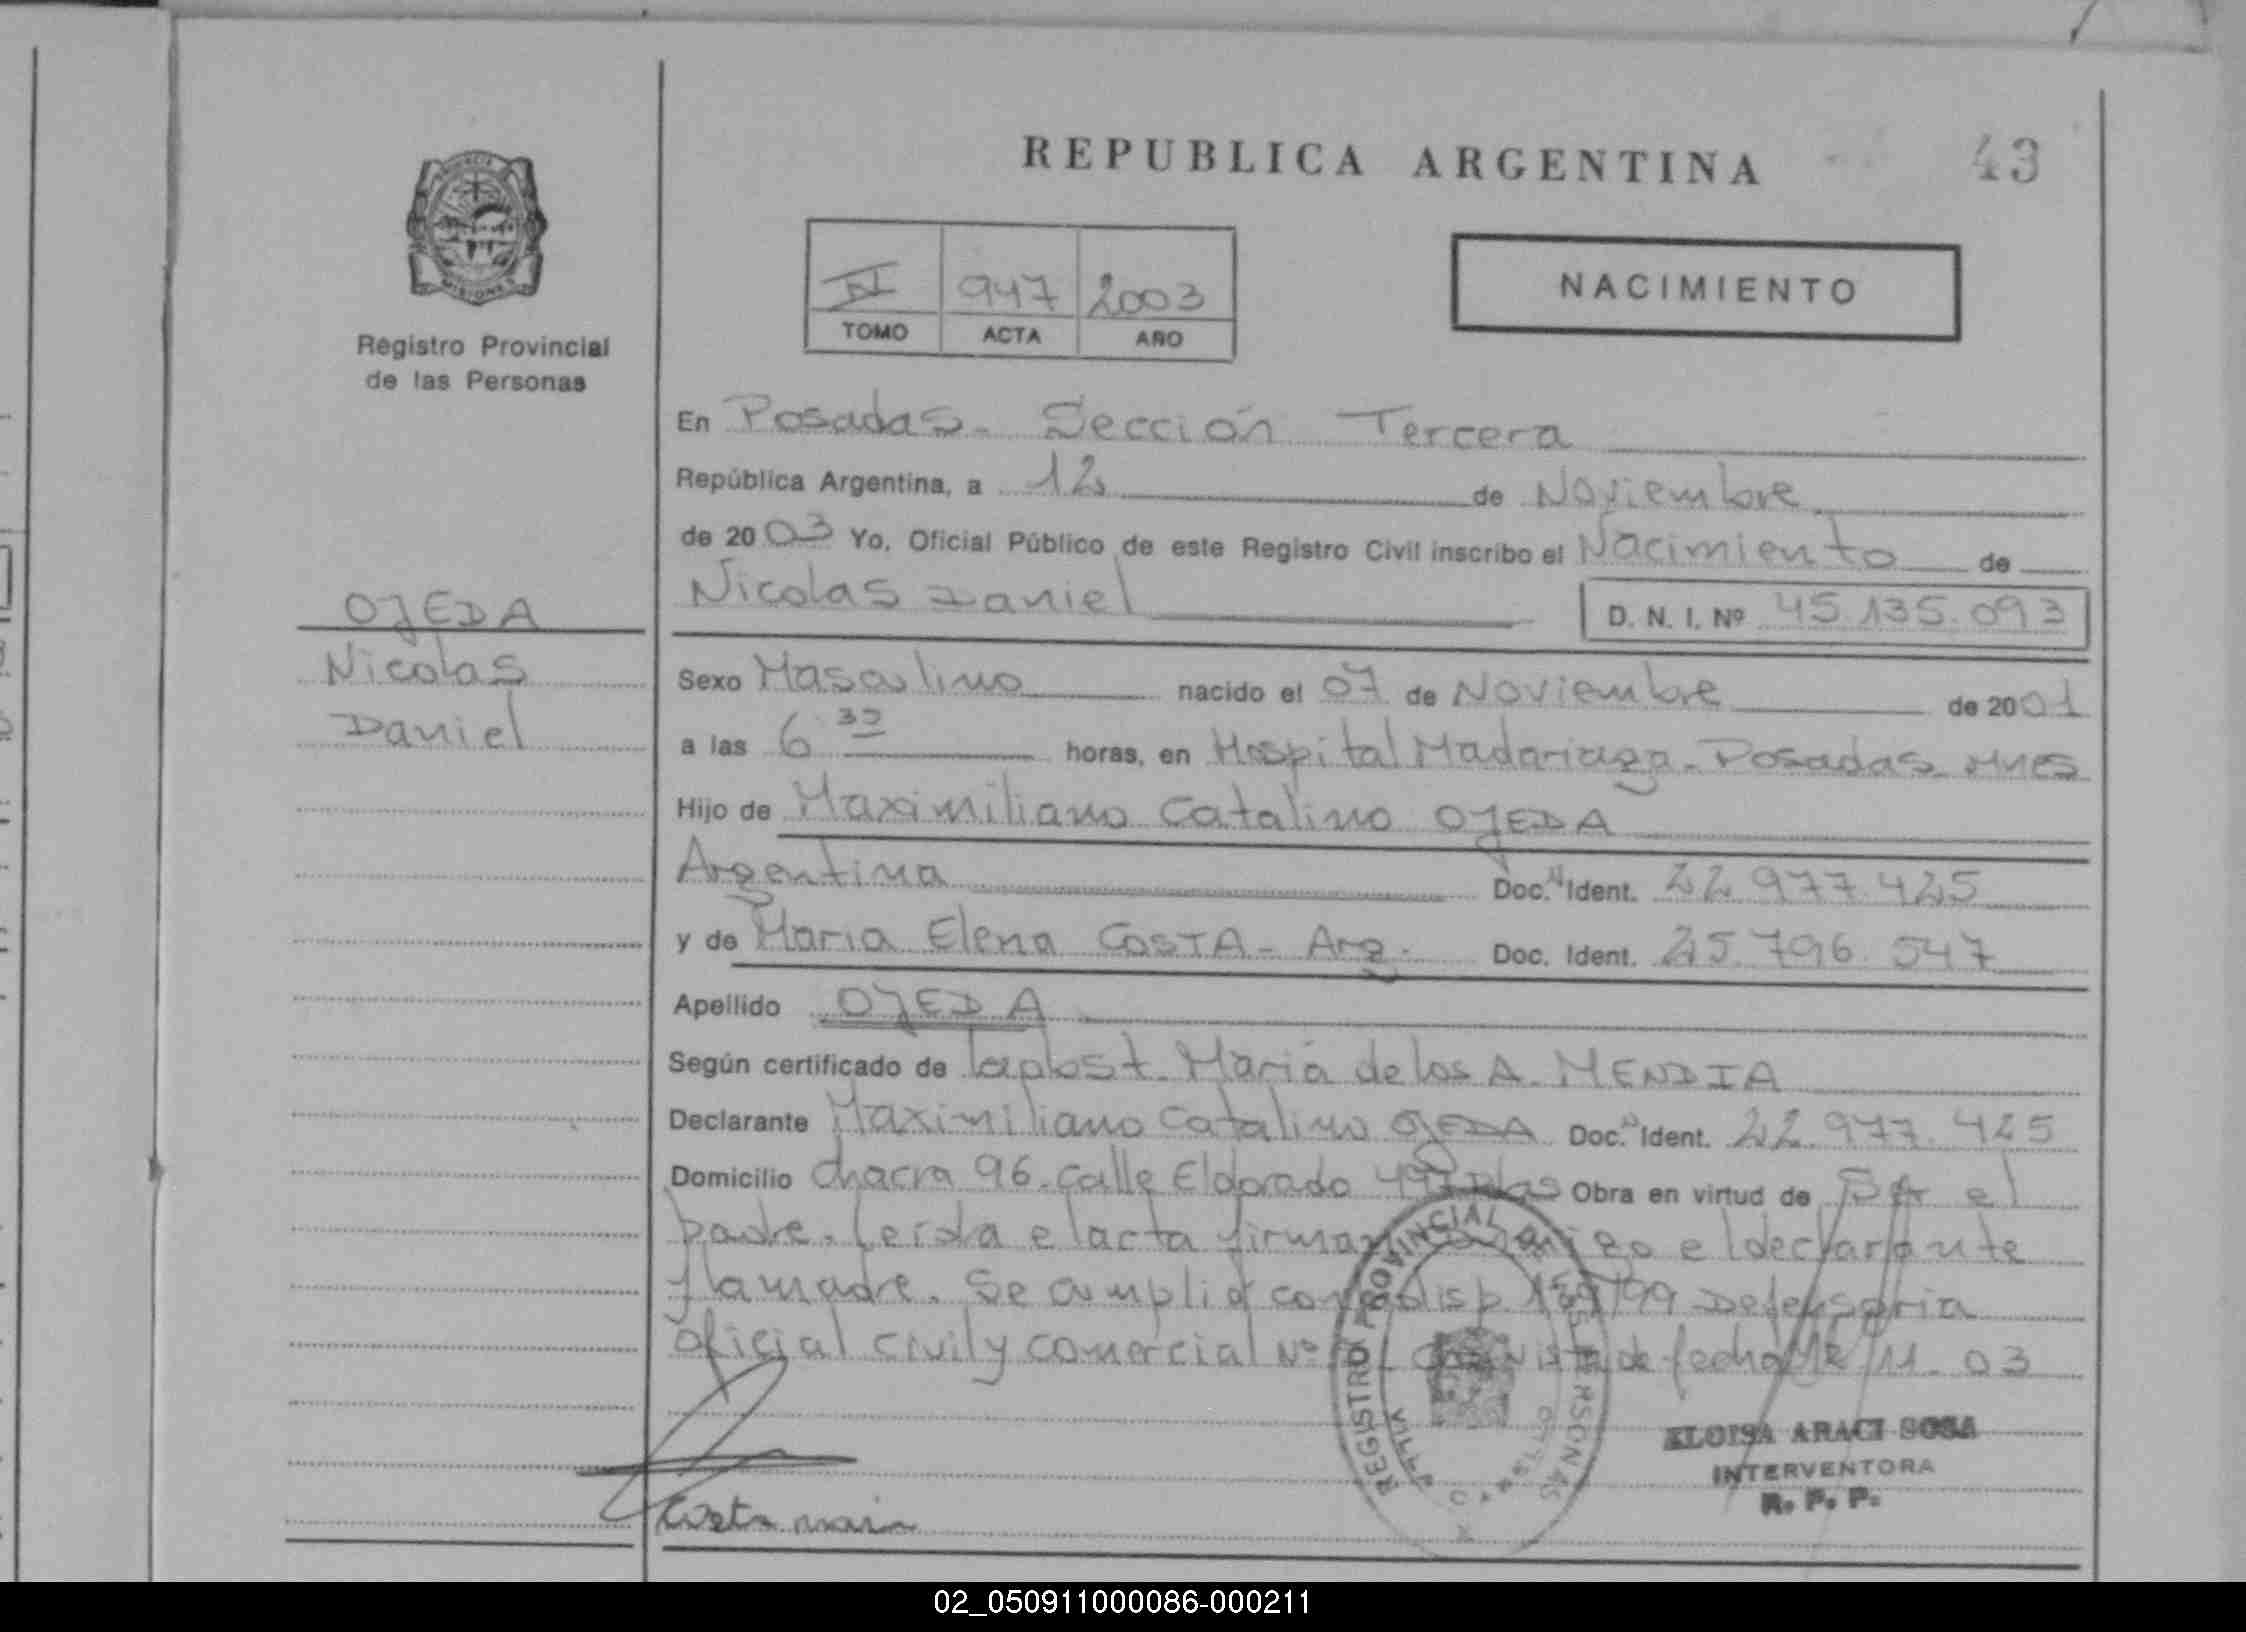 REPUBLICA ARGENTINA
43
NACIMIENTO
947 2003
TOMO ACTA AÑO
PROVINCIA
MISIONES
Registro Provincial
de las Personas
OJEDA
Nicolas
Daniel
En Posadas - Sección Tercera
República Argentina, a 12 de Noviembre
de 2003 Yo, Oficial Público de este Registro Civil inscribo el Nacimiento de
Nicolas Daniel D. N. I. Nº 45.135.093
Sexo Masculino nacido el 07 de Noviembre de 2001
a las 6 30 horas, en Hospital Madariaga - Posadas - Mnes
Hijo de Maximiliano Catalino OJEDA
Argentina Doc. Ident. 22.977.425
y de Maria Elena COSTA - Arg. Doc. Ident. 25.796.547
Apellido OJEDA
Según certificado de la obst. Maria de los A. MENDIA
Declarante Maximiliano Catalino OJEDA Doc. Ident. 22.977.425
Domicilio Chacra 96 - Calle Eldorado Obra en virtud de el
padre. Leida el acta firman conmigo el declarante
y la madre. Se cumplió con disp. /99 Defensoria
oficial civil y comercial Nº vista de fecha 11 - 03
REGISTRO PROVINCIAL DE LAS PERSONAS
ELOISA ARACI SOSA
INTERVENTORA
R. P. P.
Costa maria
02_050911000086-000211